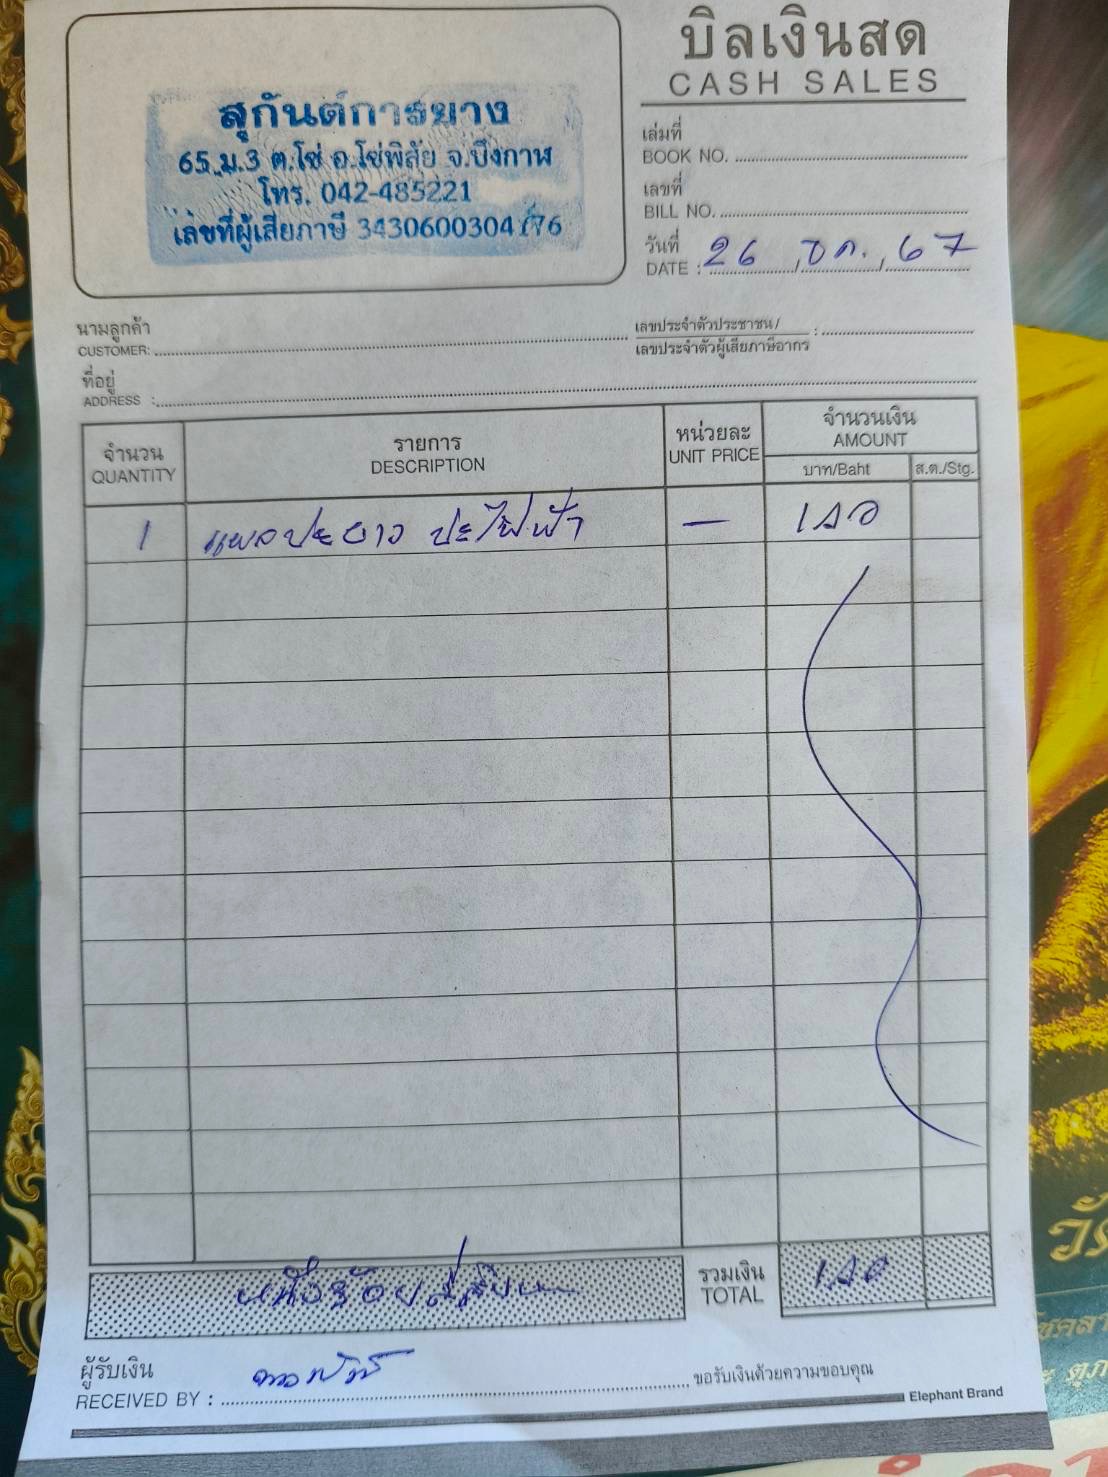 บิลเงินสด
CASH SALES
สุกันต์การยาง
65 ม.3 ต.โซ่ อ.โซ่พิสัย จ.บึงกาฬ
โทร. 042-485221
เลขที่ผู้เสียภาษี 3430600304176
เล่มที่
BOOK NO.
เลขที่
BILL NO.
วันที่
DATE : 26 , ธค. , 67
นามลูกค้า
CUSTOMER:
เลขประจำตัวประชาชน /
เลขประจำตัวผู้เสียภาษีอากร :
ที่อยู่
ADDRESS :
จำนวน รายการ หน่วยละ จำนวนเงิน
QUANTITY DESCRIPTION UNIT PRICE AMOUNT
บาท/Baht ส.ต./Stg.
1 ปะยาง ปะไฟฟ้า — 140
หนึ่งร้อยสี่สิบ
รวมเงิน 140
TOTAL
ผู้รับเงิน
RECEIVED BY :
ขอรับเงินด้วยความขอบคุณ
Elephant Brand